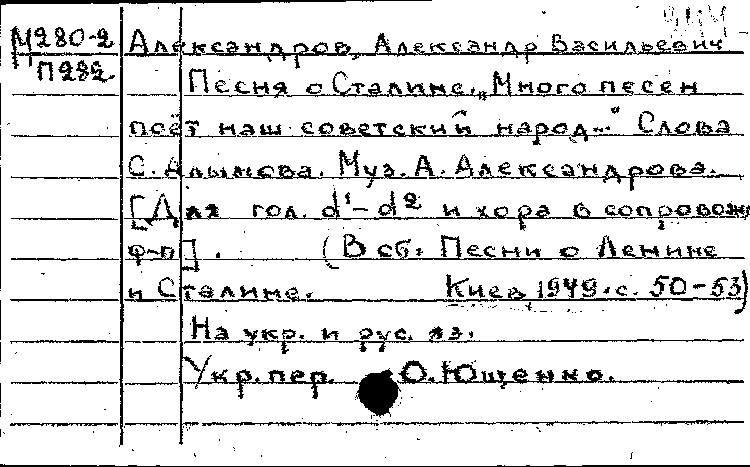 М280-2 Александров, Александр Васильевич
П282 Песня о Сталине. „Много песен
поёт наш советский народ..." Слова
С. Алымова. Муз. А. Александрова.
[Для гол. d¹-d² и хора в сопровожд
ф-п]. (В сб: Песни о Ленине
и Сталине. Киев, 1949. с. 50-53)
На укр. и рус. яз.
Укр. пер. О. Ющенко.